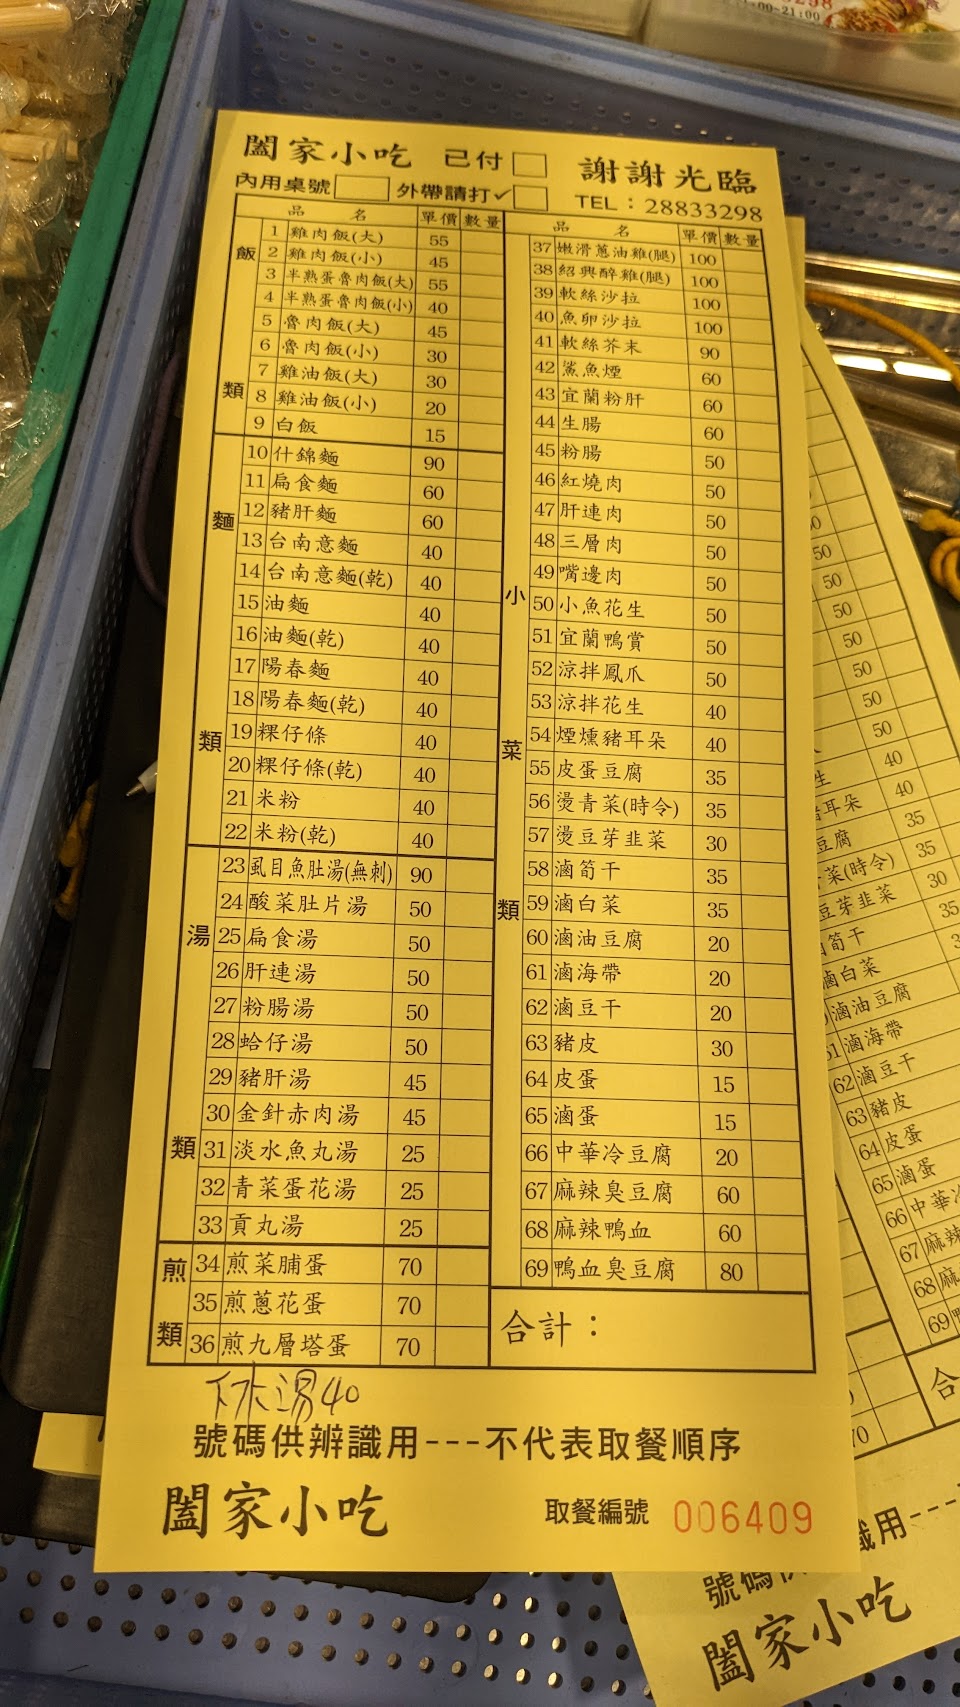 闔家小吃 已付 謝謝光臨
內用桌號 外帶請打✓ TEL：28833298
品名 單價 數量
飯類
1 雞肉飯(大) 55
2 雞肉飯(小) 45
3 半熟蛋魯肉飯(大) 55
4 半熟蛋魯肉飯(小) 40
5 魯肉飯(大) 45
6 魯肉飯(小) 30
7 雞油飯(大) 30
8 雞油飯(小) 20
9 白飯 15
麵類
10 什錦麵 90
11 扁食麵 60
12 豬肝麵 60
13 台南意麵 40
14 台南意麵(乾) 40
15 油麵 40
16 油麵(乾) 40
17 陽春麵 40
18 陽春麵(乾) 40
19 粿仔條 40
20 粿仔條(乾) 40
21 米粉 40
22 米粉(乾) 40
湯類
23 虱目魚肚湯(無刺) 90
24 酸菜肚片湯 50
25 扁食湯 50
26 肝連湯 50
27 粉腸湯 50
28 蛤仔湯 50
29 豬肝湯 45
30 金針赤肉湯 45
31 淡水魚丸湯 25
32 青菜蛋花湯 25
33 貢丸湯 25
煎類
34 煎菜脯蛋 70
35 煎蔥花蛋 70
36 煎九層塔蛋 70
品名 單價 數量
小菜類
37 嫩滑蔥油雞(腿) 100
38 紹興醉雞(腿) 100
39 軟絲沙拉 100
40 魚卵沙拉 100
41 軟絲芥末 90
42 鯊魚煙 60
43 宜蘭粉肝 60
44 生腸 60
45 粉腸 50
46 紅燒肉 50
47 肝連肉 50
48 三層肉 50
49 嘴邊肉 50
50 小魚花生 50
51 宜蘭鴨賞 50
52 涼拌鳳爪 50
53 涼拌花生 40
54 煙燻豬耳朵 40
55 皮蛋豆腐 35
56 燙青菜(時令) 35
57 燙豆芽韭菜 30
58 滷筍干 35
59 滷白菜 35
60 滷油豆腐 20
61 滷海帶 20
62 滷豆干 20
63 豬皮 30
64 皮蛋 15
65 滷蛋 15
66 中華冷豆腐 20
67 麻辣臭豆腐 60
68 麻辣鴨血 60
69 鴨血臭豆腐 80
合計：
下水湯40
號碼供辨識用---不代表取餐順序
闔家小吃 取餐編號 006409
50
50
50
50
50
50
50
生 40
豬耳朵 40
豆腐 35
菜(時令) 35
豆芽韭菜 30
筍干 35
滷白菜
滷油豆腐
61 滷海帶
62 滷豆干
63 豬皮
64 皮蛋
65 滷蛋
66 中華
67 麻辣
68
69
合
70
號碼供 識用---
闔家小吃